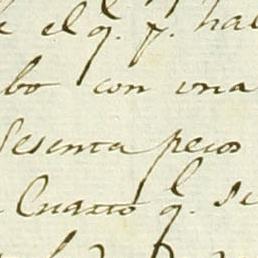 el q. p. hal
bo con una
Sesenta pesos
Cuarto q. Se